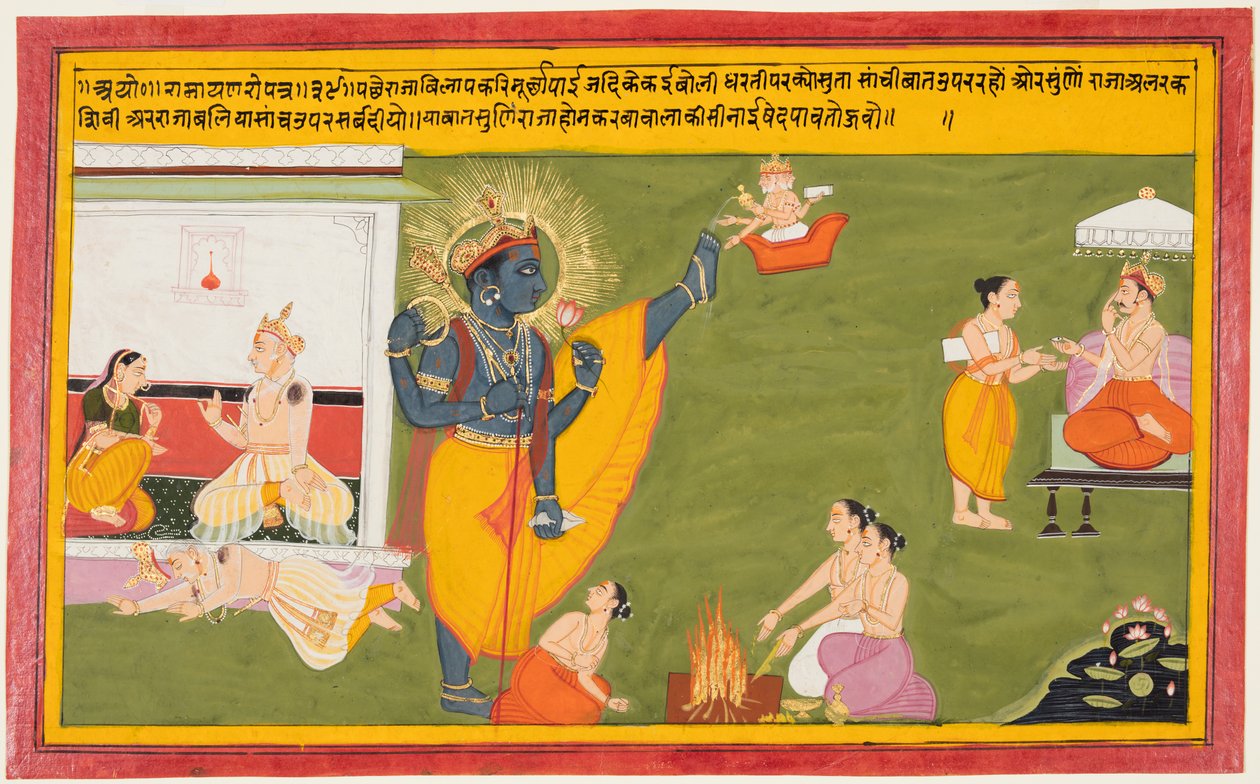 ॥अयो०॥रामायणरोपत्र॥३९॥पछैराजाबिलापकरिमूर्छापाईजदिकेकईबोली धरतीपरक्योसुतासांचीबातउपररहों ओरसुंणों राजाअलरक
शिवी अरराजाबलियासांचउपरसर्बदीयो॥याबातसुणिराजाहोमकरबावालाकीसीनाईषेदपावतोऊवो॥ ॥